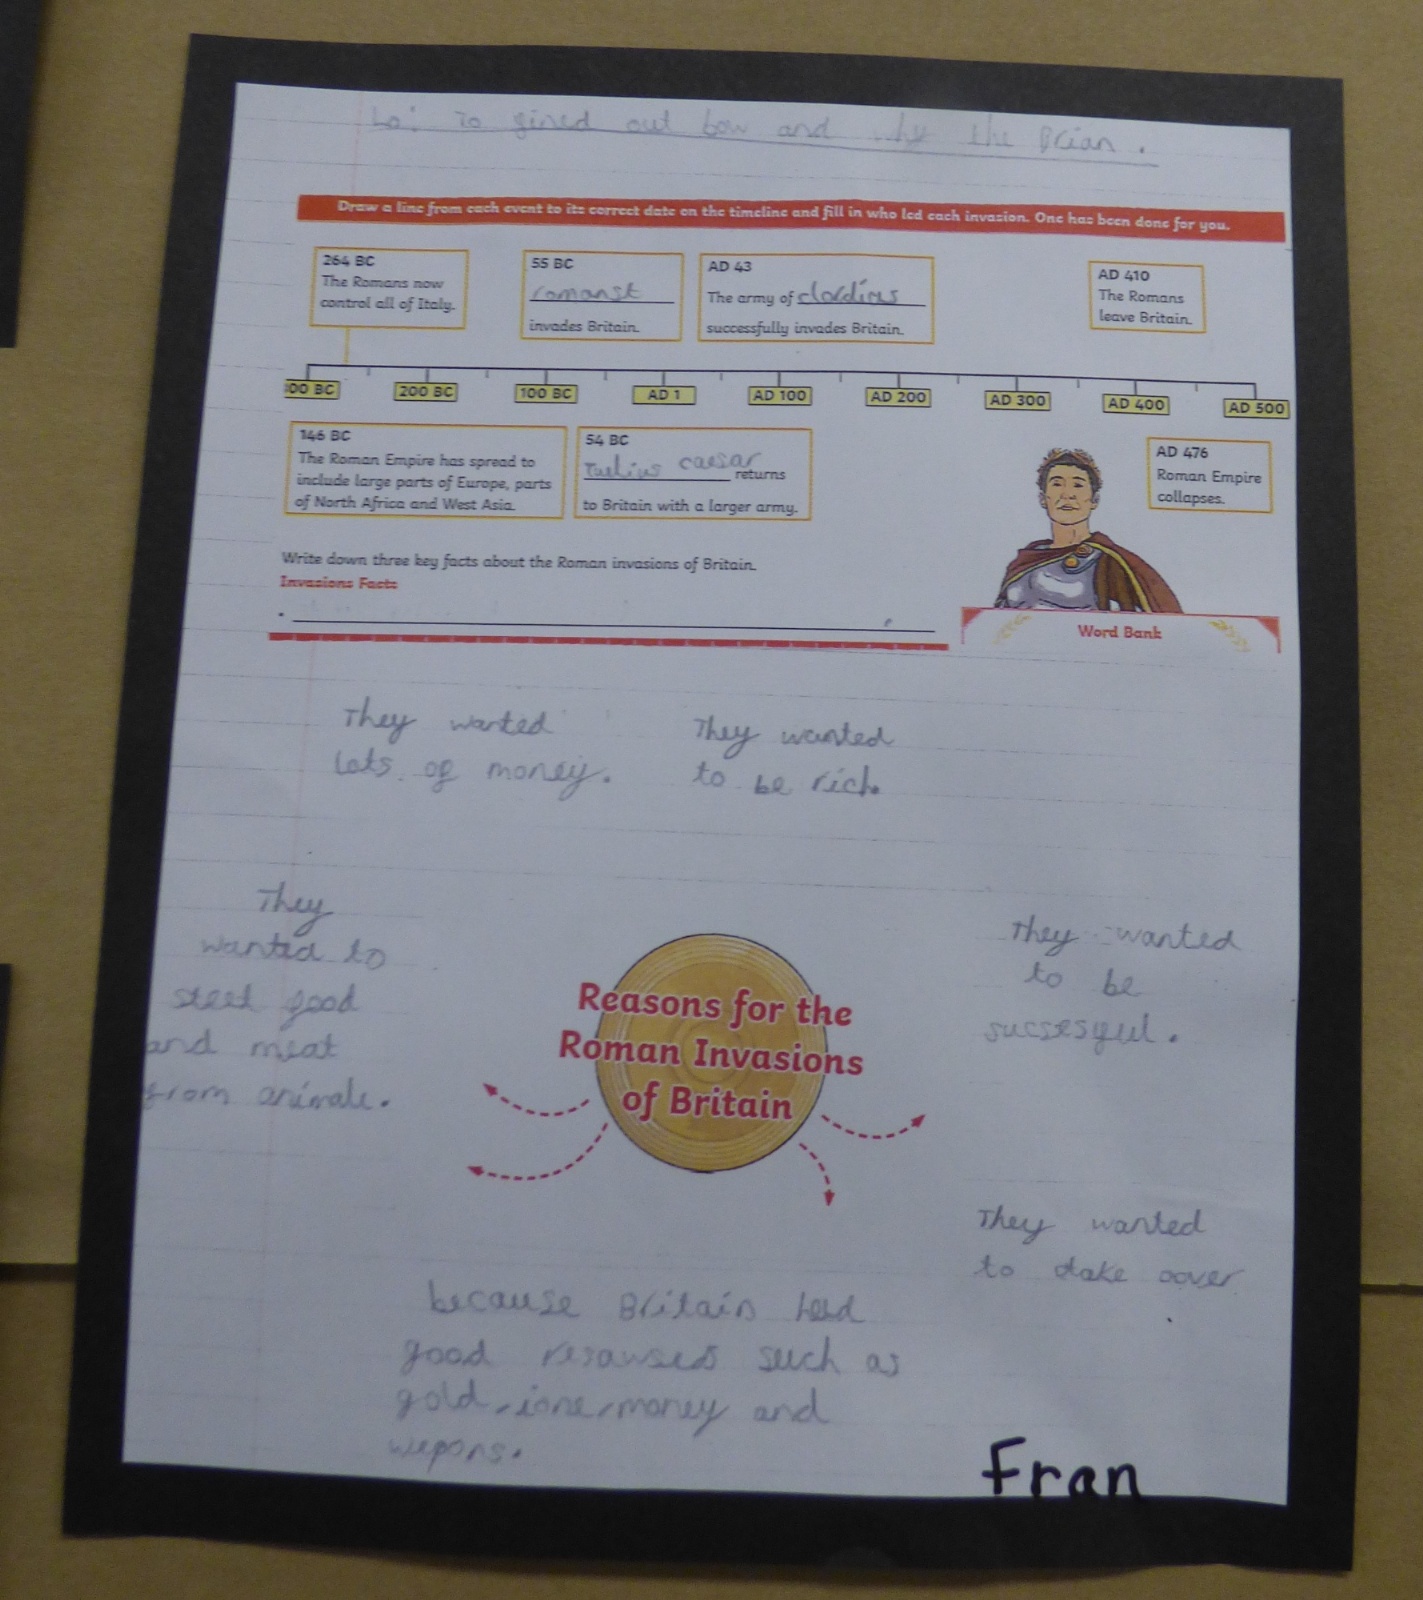 Lo: To gined out bow and why the Brian.
Draw a line from each event to its correct date on the timeline and fill in who led each invasion. One has been done for you.
264 BC
The Romans now
control all of Italy.
55 BC
romanst
invades Britain.
AD 43
The army of clardius
successfully invades Britain.
AD 410
The Romans
leave Britain.
00 BC
200 BC
100 BC
AD 1
AD 100
AD 200
AD 300
AD 400
AD 500
146 BC
The Roman Empire has spread to
include large parts of Europe, parts
of North Africa and West Asia.
54 BC
Tuelius caesar returns
to Britain with a larger army.
AD 476
Roman Empire
collapses.
Write down three key facts about the Roman invasions of Britain.
Invasions Facts
Word Bank
They wanted
lots of money.
They wanted
to be rich.
They
wanted to
steel good
and meat
from animals.
Reasons for the
Roman Invasions
of Britain
They wanted
to be
sucsesful.
They wanted
to take oover
because Britain had
good resawses such as
gold, ione, money and
wepons.
Fran